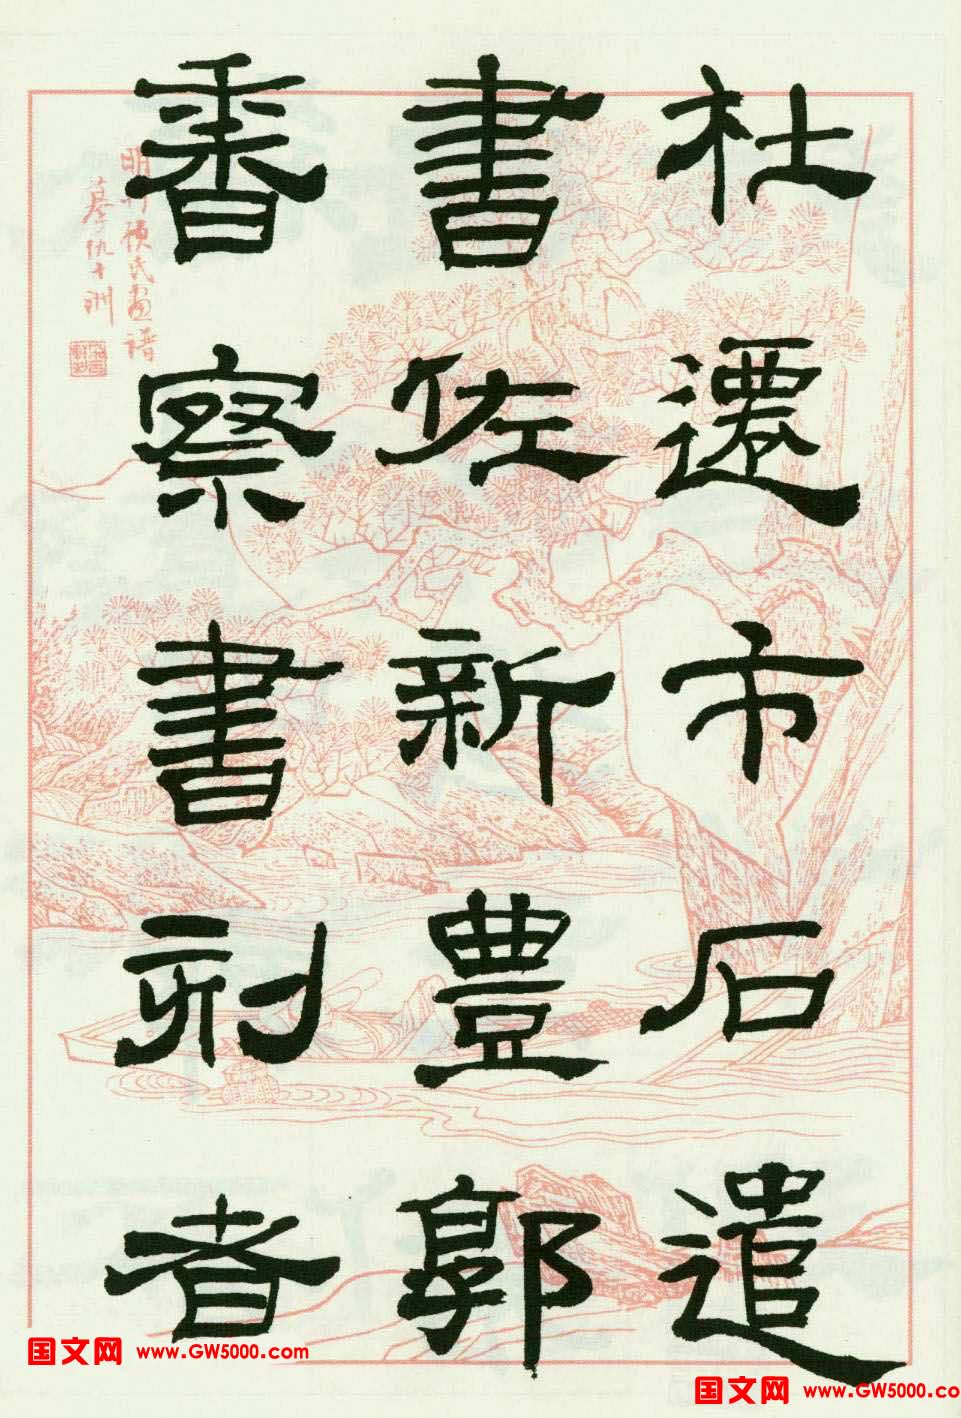 杜遷市石遣
書佐新豊郭
香察書刻者
明刊顧氏畫譜
摹仇十洲
国文网 www.GW5000.com
国文网 www.GW5000.co